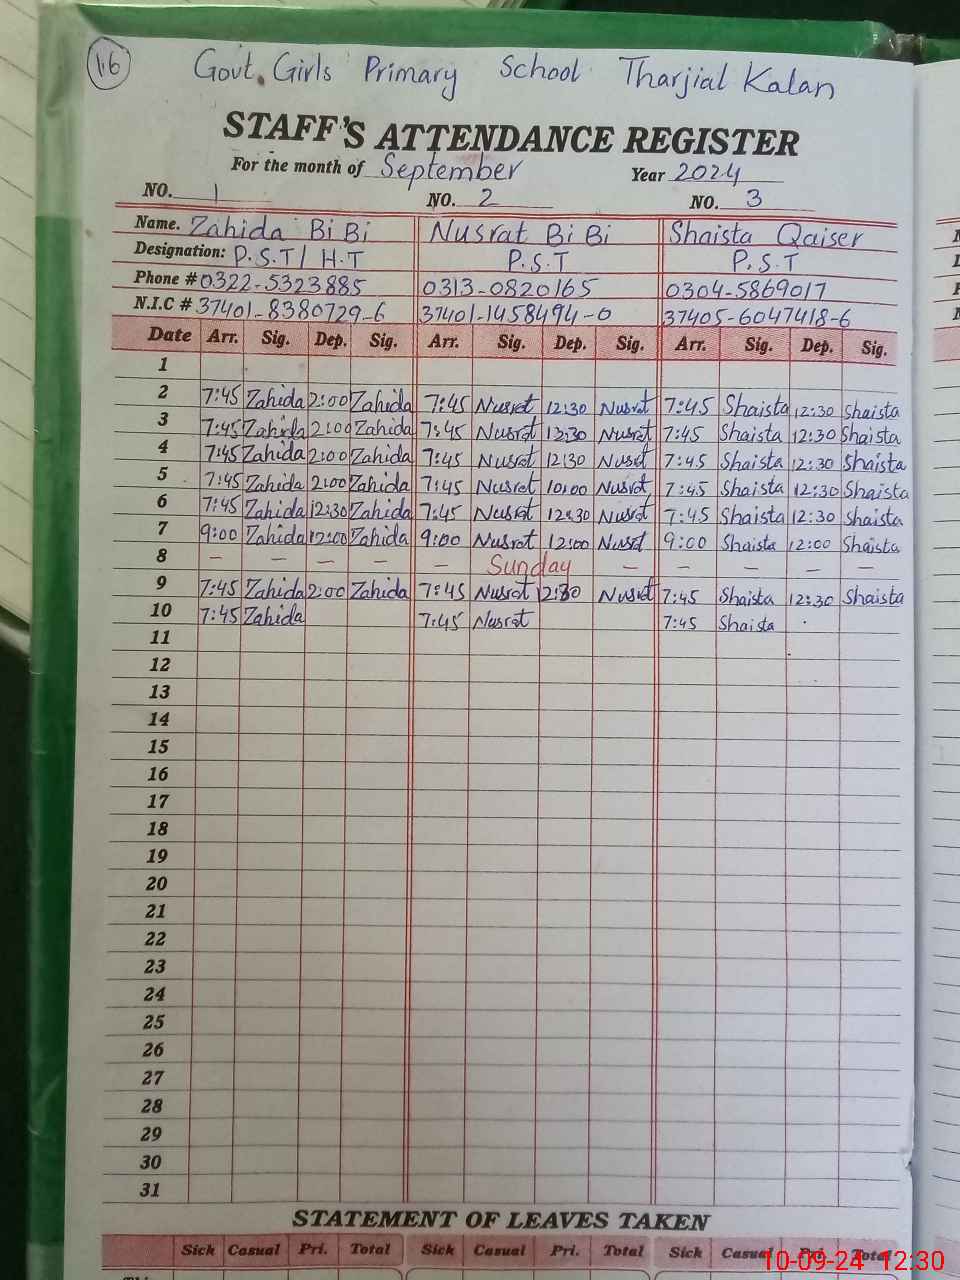 116
Govt. Girls Primary School Tharjial Kalan
STAFF'S ATTENDANCE REGISTER
For the month of September Year 2024
NO. 1 NO. 2 NO. 3
Name. Zahida BiBi Nusrat BiBi Shaista Qaiser
Designation: P.S.T / H.T P.S.T P.S.T
Phone # 0322-5323885 0313-0820165 0304-5869017
N.I.C # 37401-8380729-6 37401-1458494-0 37405-6047418-6
Date Arr. Sig. Dep. Sig. Arr. Sig. Dep. Sig. Arr. Sig. Dep. Sig.
1
2 7:45 Zahida 2:00 Zahida 7:45 Nusrat 12:30 Nusrat 7:45 Shaista 12:30 Shaista
3 7:45 Zahida 2:00 Zahida 7:45 Nusrat 12:30 Nusrat 7:45 Shaista 12:30 Shaista
4 7:45 Zahida 2:00 Zahida 7:45 Nusrat 12:30 Nusrat 7:45 Shaista 12:30 Shaista
5 7:45 Zahida 2:00 Zahida 7:45 Nusrat 10:00 Nusrat 7:45 Shaista 12:30 Shaista
6 7:45 Zahida 12:30 Zahida 7:45 Nusrat 12:30 Nusrat 7:45 Shaista 12:30 Shaista
7 9:00 Zahida 12:00 Zahida 9:00 Nusrat 12:00 Nusrat 9:00 Shaista 12:00 Shaista
8 — — — — — Sunday — — — — —
9 7:45 Zahida 2:00 Zahida 7:45 Nusrat 12:30 Nusrat 7:45 Shaista 12:30 Shaista
10 7:45 Zahida 7:45 Nusrat 7:45 Shaista
11
12
13
14
15
16
17
18
19
20
21
22
23
24
25
26
27
28
29
30
31
STATEMENT OF LEAVES TAKEN
Sick Casual Pri. Total Sick Casual Pri. Total Sick Casual Pri. Total
10-09-24 12:30